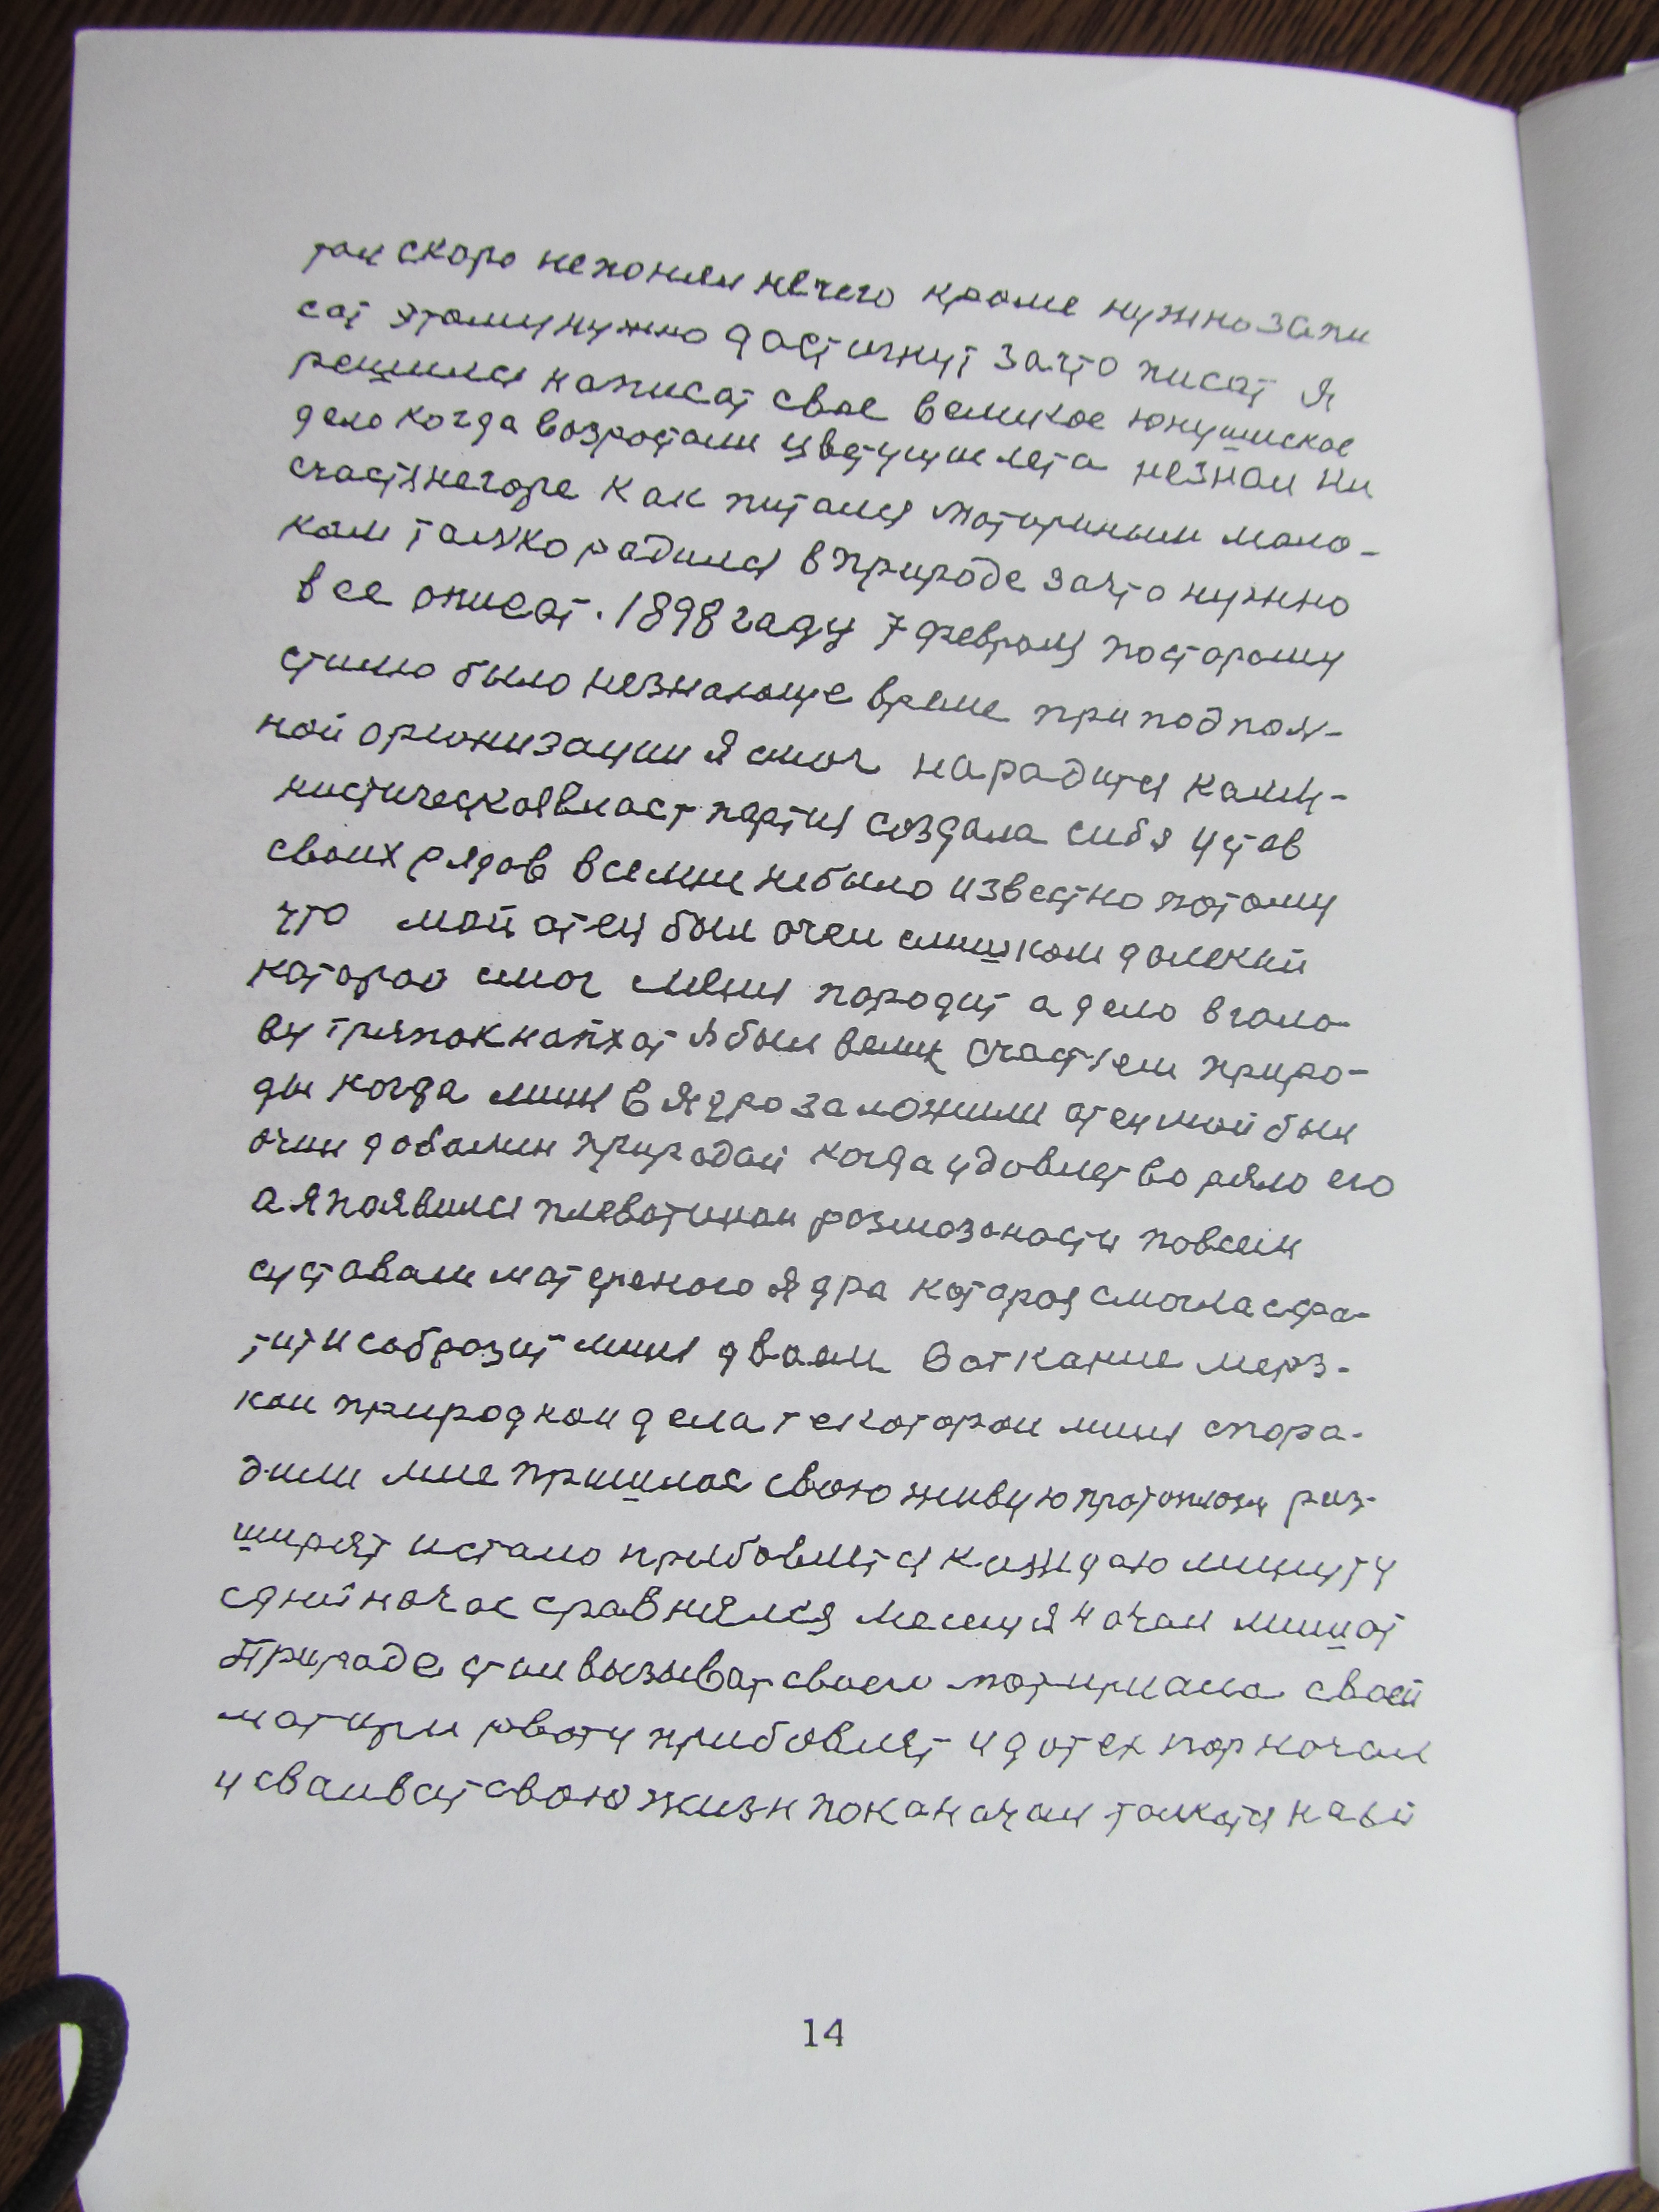 так скоро непонял нечего кроме нужно запи
сат этому нужно достигнут зачто писат я
решился написат свое великое юнушиское
дело когда возростали цветущие лета незнал ни
счастянегоре как питался матириным моло-
ком толко радился в природе зачто нужно
все описат. 1898 гаду 7 февраля постарому
стилю было незнающе время при подпол-
ной оргонизации я смог нарадится каму-
нистическоявласт партия создала сибя устав
своих рядов все мне небыло известно потому
что мой отец был очен слишком далекий
каторой смог меня породит а дело в голо-
ву тряпок напхат я был велик счастям приро-
ды когда миня в ядро заложили отец мой был
очин доволин природай когда удовлетворяло его
а я появился плеватином розмозаности повсем
суставам матерного ядра каторая смогла сфа-
тит и собразит миня двоем вот какие мерз-
кои природнои дела те каторои миня спора-
дили мне пришлося свою живую протоплазму раз-
ширят истало прибовлятся каждаю минуту
сднйиночас сравнялся месяц я начал мишат
Природе стал вызыват своего потириала своей
матири рвоту прибовлят идотех пор начал
усваиват свою жизн пока начал толкатся навой
14